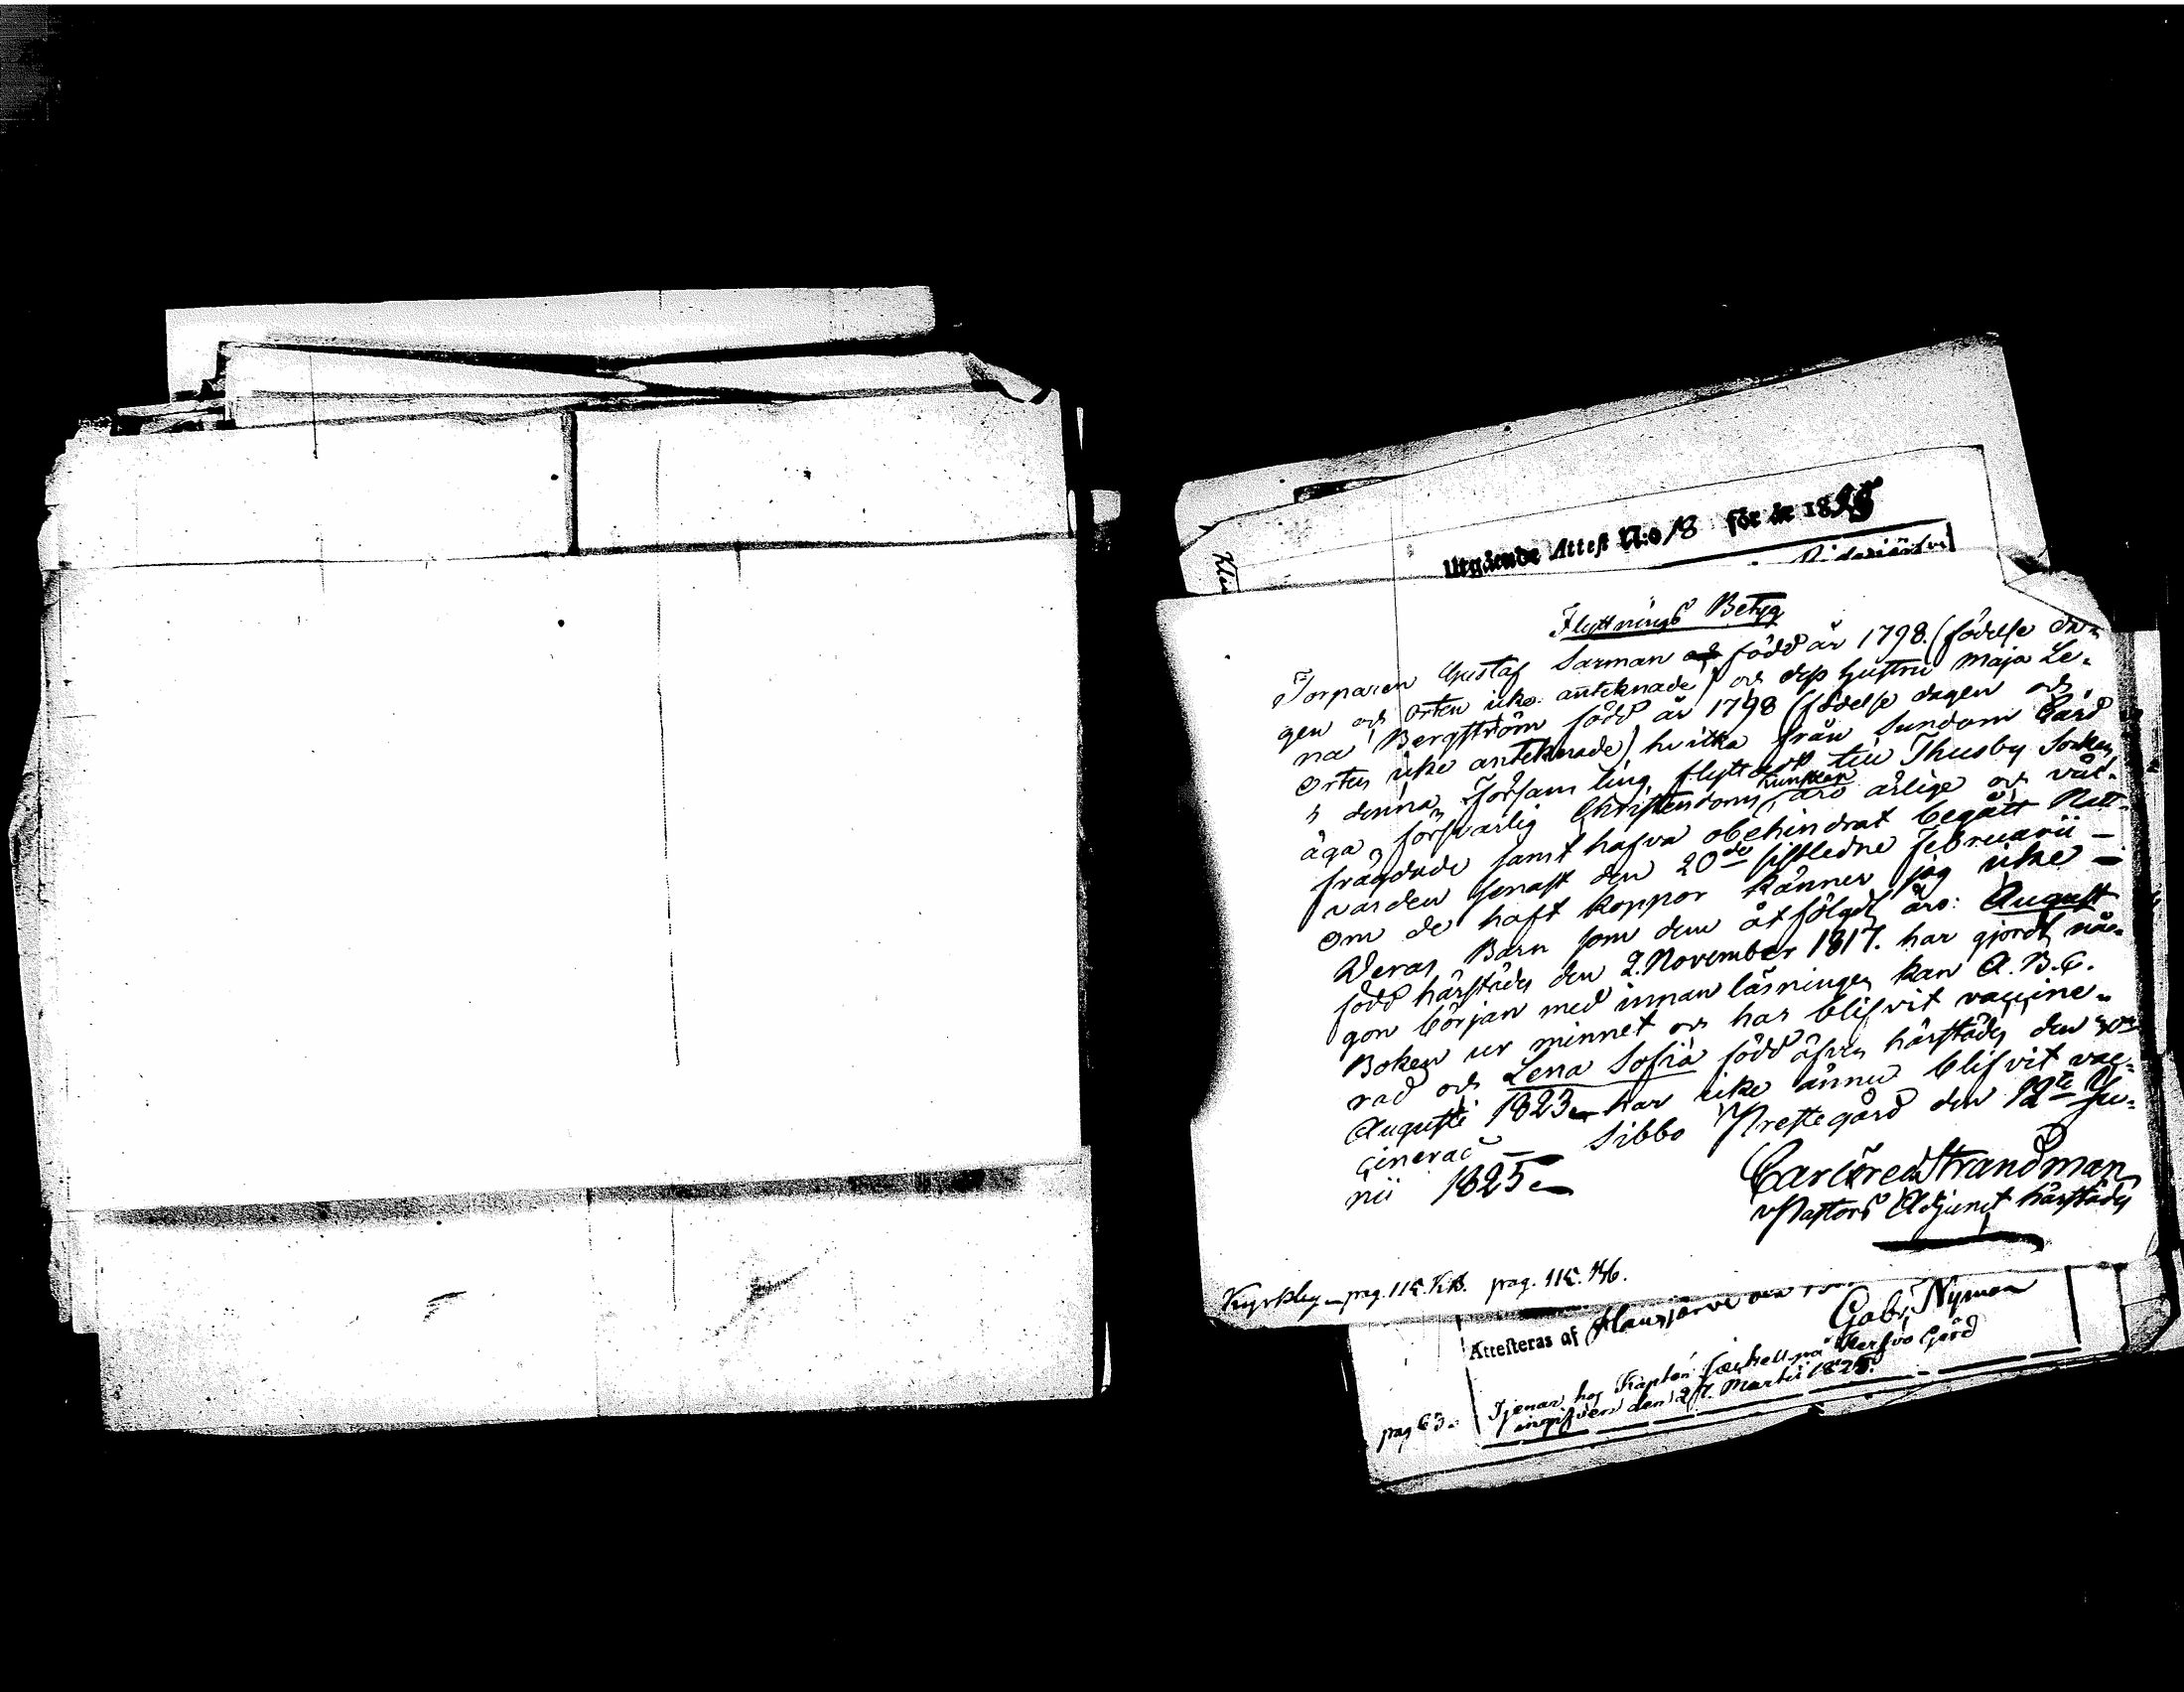 Utgående Attest N:o 18 för år 1825
Flyttnings Betyg
Torparen Gustaf Sarman och född år 1798. (födelse da-
gen och orten icke anteknade) och dess hustru Maja Le-
na Bergström född år 1798 (födelse dagen och
orten icke anteknade) hvilka från Sundom Gård
i denna Församling flyttadt till Thusby Socken,
äga försvarlig Christendoms kunskap, äro ärlige och väl-
frägdade samt hafva obehindrat begått Natt-
varden senast den 20de sistledne Februarii —
Om de haft koppor känner jag icke —
Deras Barn som dem åtfölgdt äro: August
född härstädes den 2. November 1817. har gjordt nå-
gon början med innanläsningen kan A.B.C.
Boken ur minnet och har blifvit vaccine-
rad och Lena Sofia född äfven härstädes den
Augusti 1823 har icke ännu blifvit vac-
cinerad — Sibbo Prestegård den 12te Ju-
nii 1825
Carl Strandman
v Pastors Adjunct härstädes
pag. 115. KB. pag. 115.
Attesteras af Hausjärvi den
Gabr. Nyman
Tjenar hos Kapten på Kerfvo Gård
ingifven den 27. Martii 1825.
pag 63.